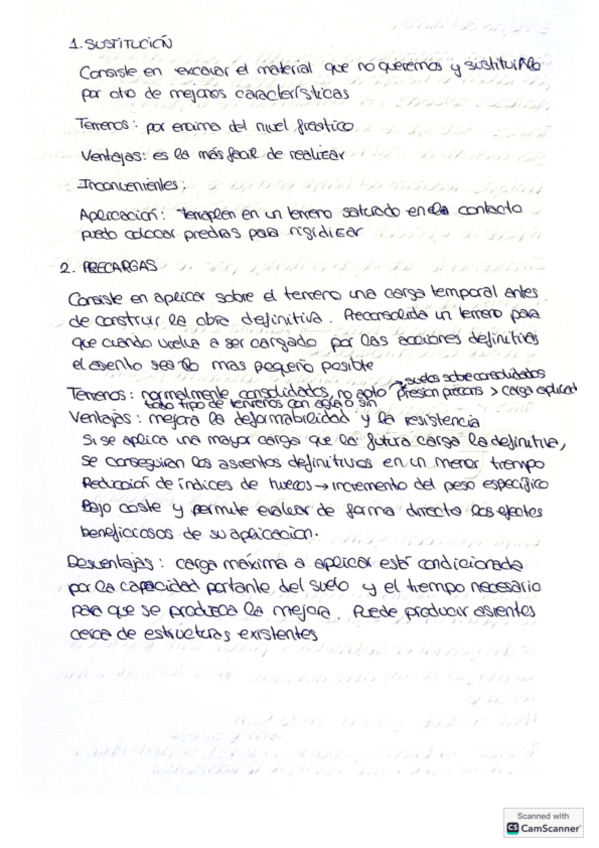 1. SUSTITUCIÓN
Consiste en excavar el material que no queremos y sustituirlo
por otro de mejores características
Terrenos: por encima del nivel freático
Ventajas: es la más fácil de realizar
Inconvenientes:
Aplicación: terraplén en un terreno saturado en el contacto
puedo colocar piedras para rigidizar
2. PRECARGAS
Consiste en aplicar sobre el terreno una carga temporal antes
de construir la obra definitiva. Preconsolida un terreno para
que cuando vuelva a ser cargado por las acciones definitivas
el asiento sea lo mas pequeño posible
→ suelos sobreconsolidados
Terrenos: normalmente consolidados, no apto presión precons > carga aplicada
todo tipo de terrenos con agua o sin
Ventajas: mejora la deformabilidad y la resistencia
Si se aplica una mayor carga que la futura carga la definitiva,
se conseguiran los asientos definitivos en un menor tiempo
Reducción de índices de huecos → incremento del peso específico
Bajo coste y permite evaluar de forma directa los efectos
beneficiosos de su aplicacion.
Desventajas: carga máxima a aplicar está condicionada
por la capacidad portante del suelo y el tiempo necesario
para que se produzca la mejora. Puede producir asientos
cerca de estructuras existentes
Scanned with
CS CamScanner